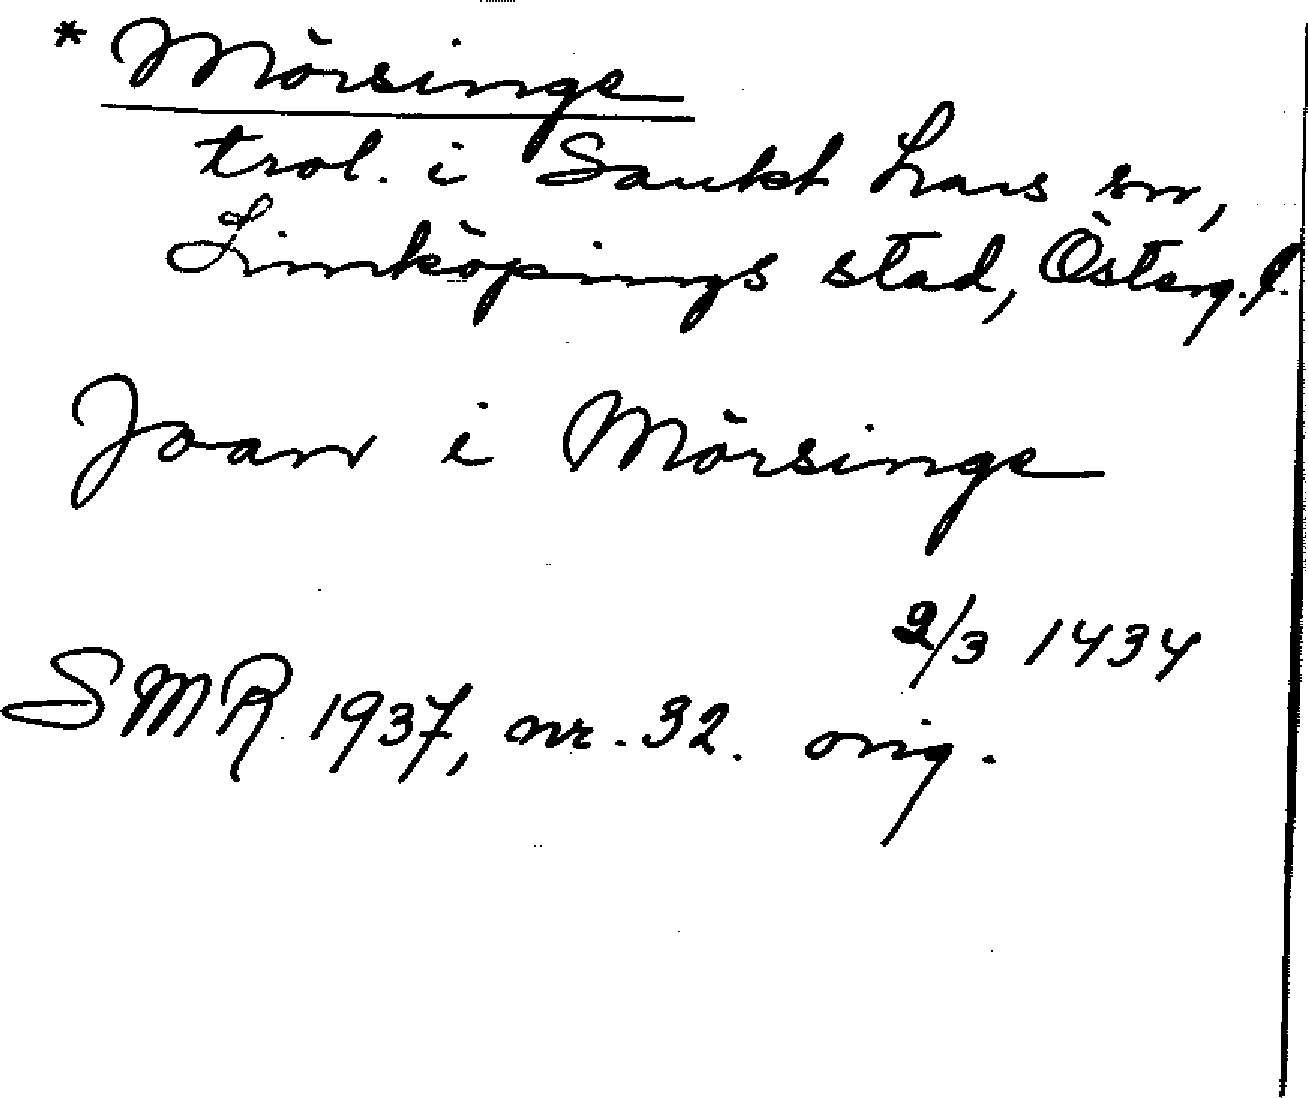 * Mörsinge
trol. i Sankt Lars sn,
Linköpings stad, Österg. l.
Joan i Mörsinge
2/3 1434
SMR 1937, nr. 32. orig.